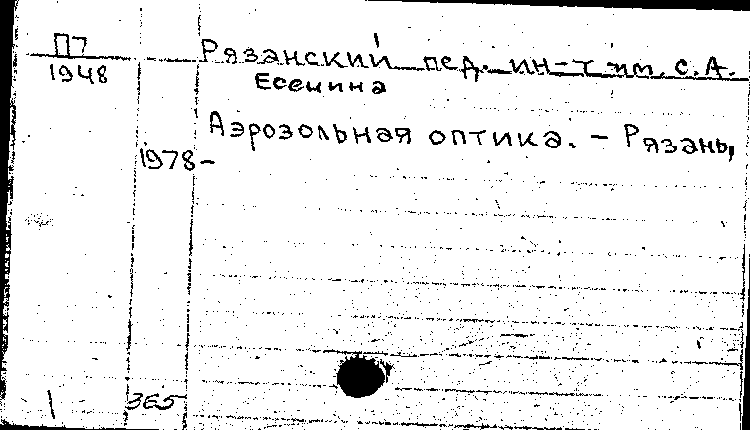 П7
1948
Рязанский пед. ин-т им. С.А.
Есенина
Аэрозольная оптика. – Рязань,
1978-
365